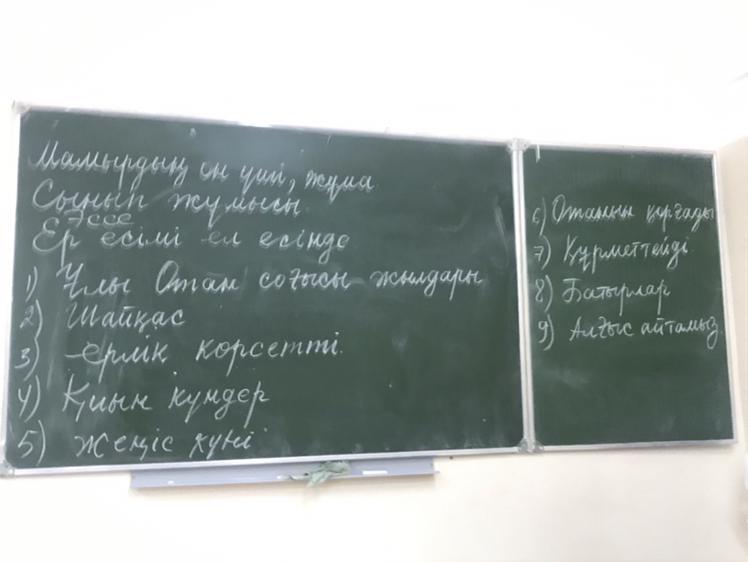 Мамырдың он үші, жұма
Сынып жұмысы.
Эссе
Ер есімі ел есінде
1) Ұлы Отан соғысы жылдары
2) Шайқас
3) –ерлік көрсетті.
4) Қиын күндер
5) Жеңіс күні
6) Отанын қорғады
7) Құрметтейді
8) Батырлар
9) Алғыс айтамыз.